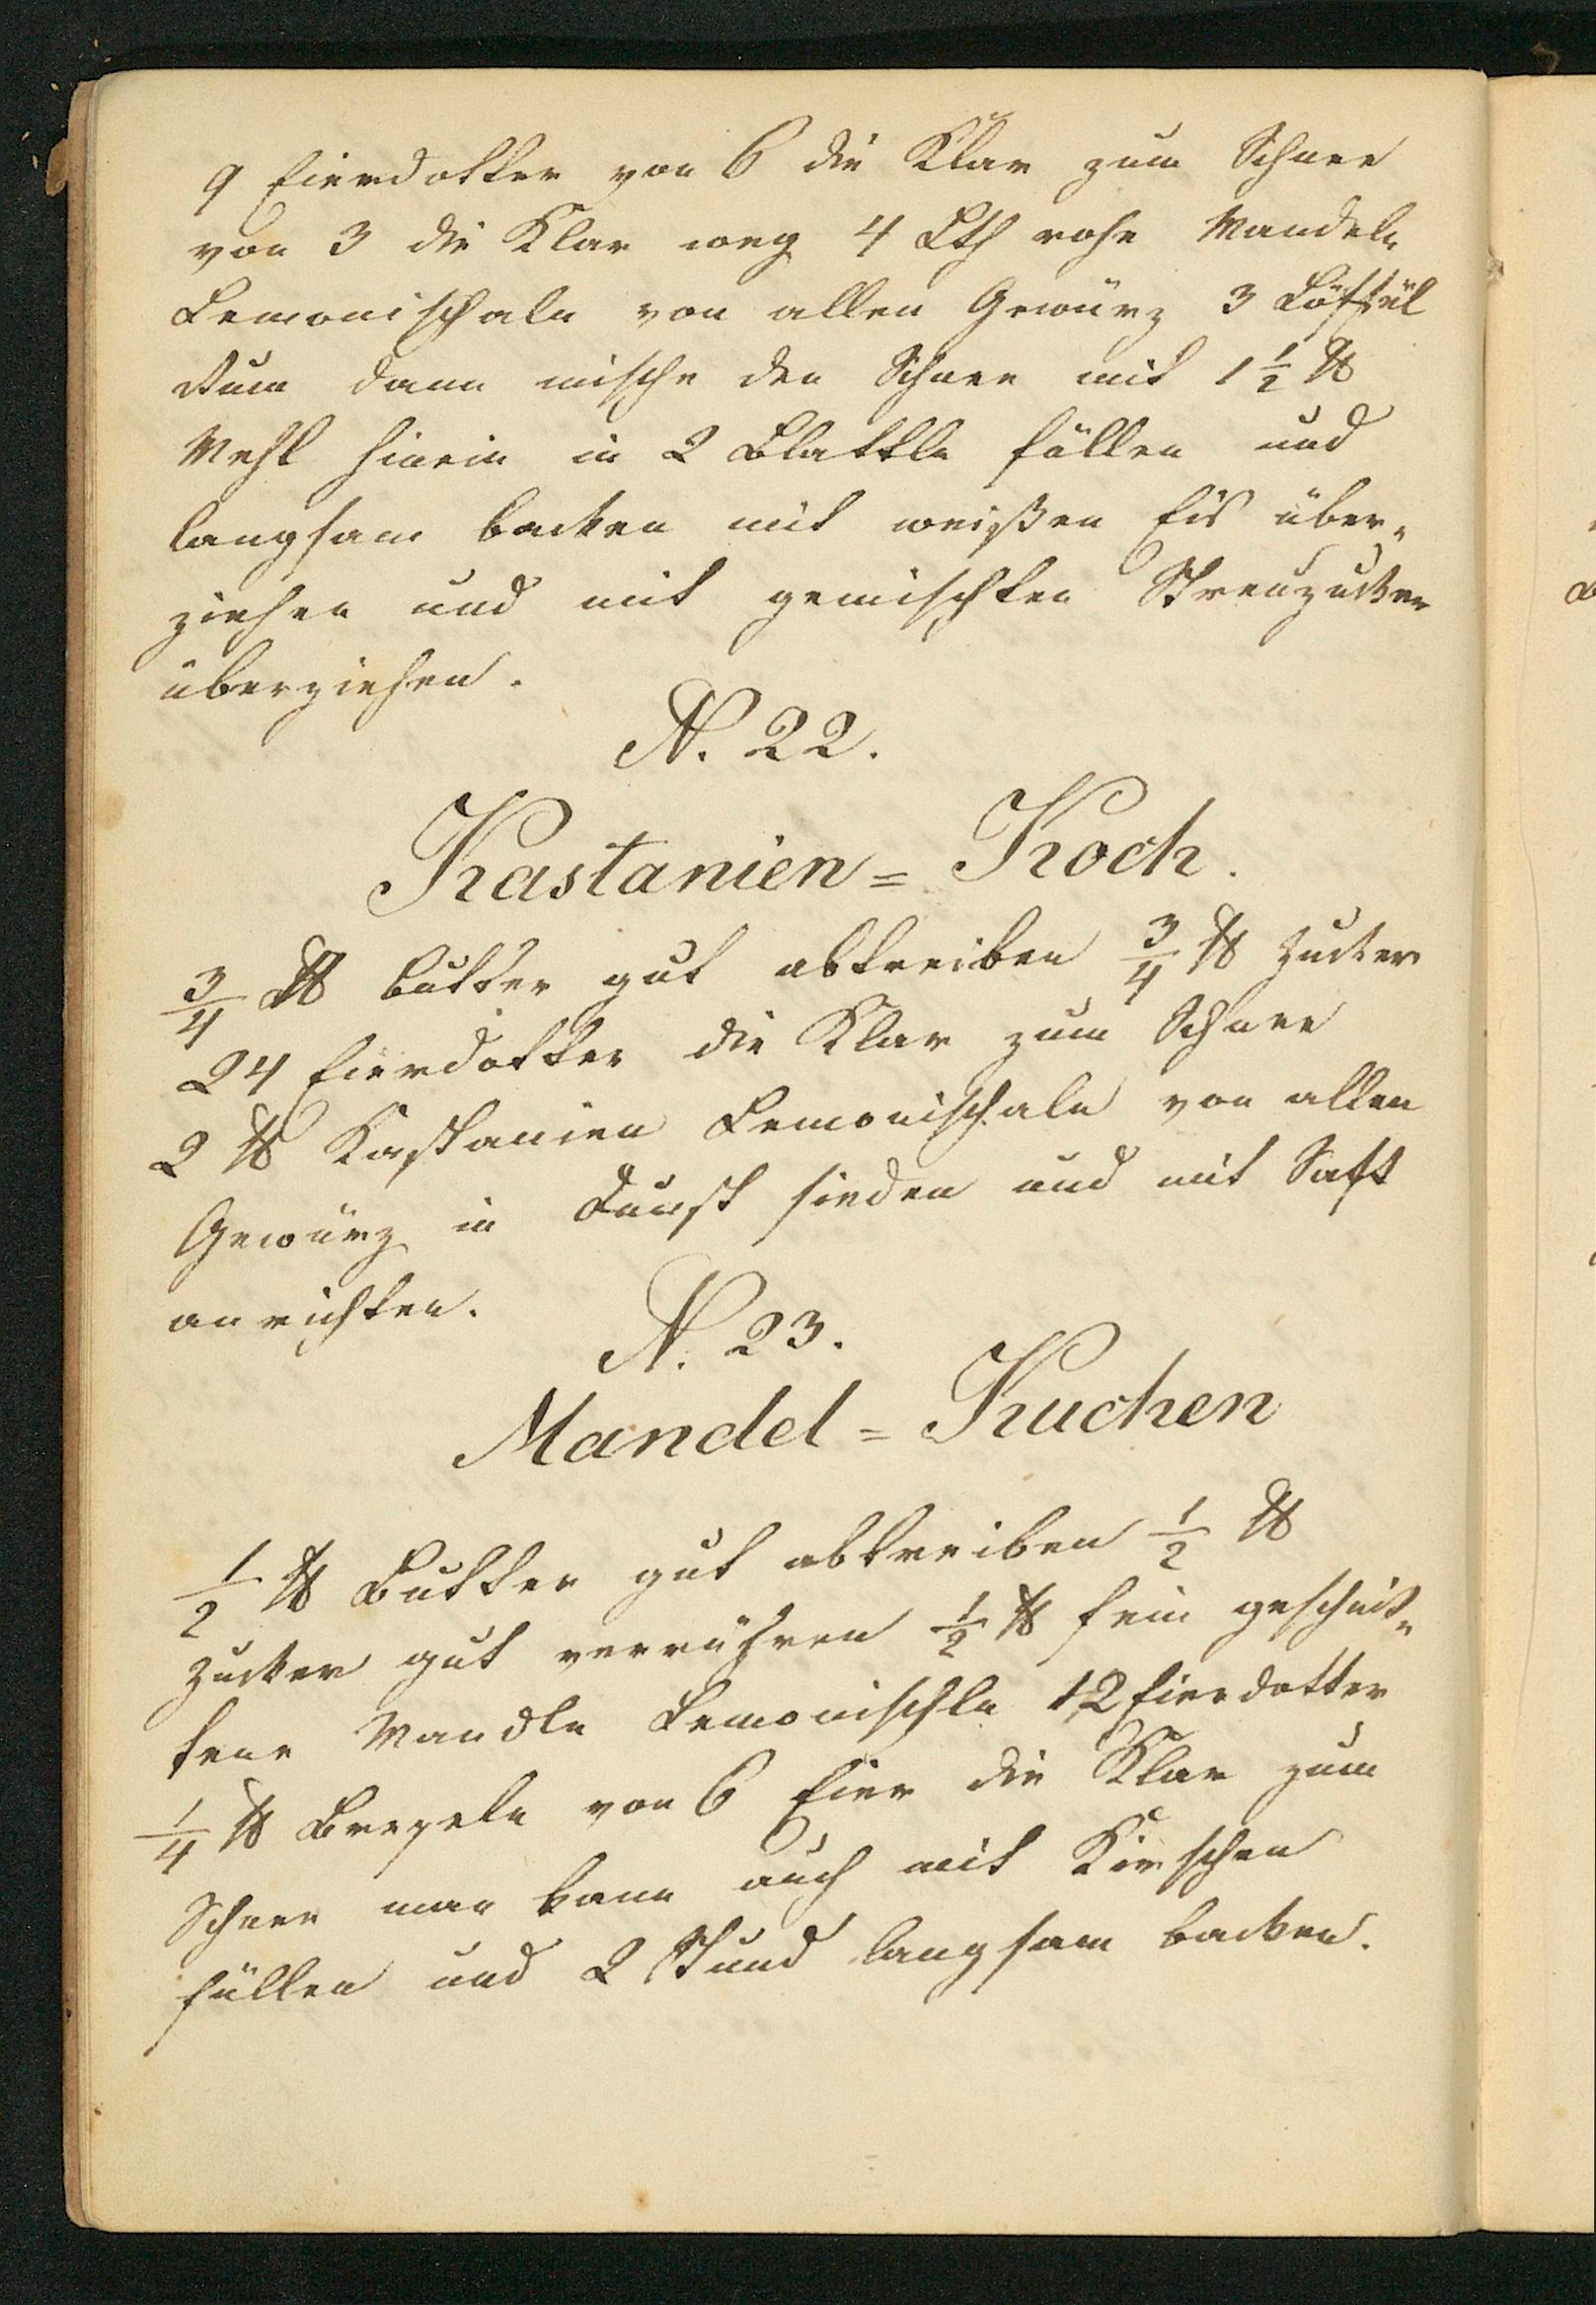 9 Eierdotter von 6 die Klar zum Schnee
von 3 die Klar weg 4 Lth rohe Mandeln
Lemonischaln von allen Gewürz 3 Löffel
Rum dann mische den Schnee mit 1 1/2 ℔
Mehl hinein in 2 Blattln füllen und
langsam backen mit weißen Eis über„
ziehen und mit gemischten Streuzucker
überziehen.
N. 22.
Kastanien = Koch.
3/4 ℔ Butter gut abtreiben 3/4 ℔ Zucker
24 Eierdotter die Klar zum Schnee
2 ℔ Kastanien Lemonischaln von allen
Gewürz in Dunst sieden und mit Saft
anrichten.
N. 23.
Mandel = Kuchen
1/2 ℔ Butter gut abtreiben 1/2 ℔
Zucker gut verrühren 1/2 ℔ fein geschnit„
tene Mandln Lemonischln 12 Eierdotter
1/4 ℔ Breseln von 6 Eier die Klar zum
Schnee man kann auch mit Kirschen
füllen und 2 Stund langsam backen.